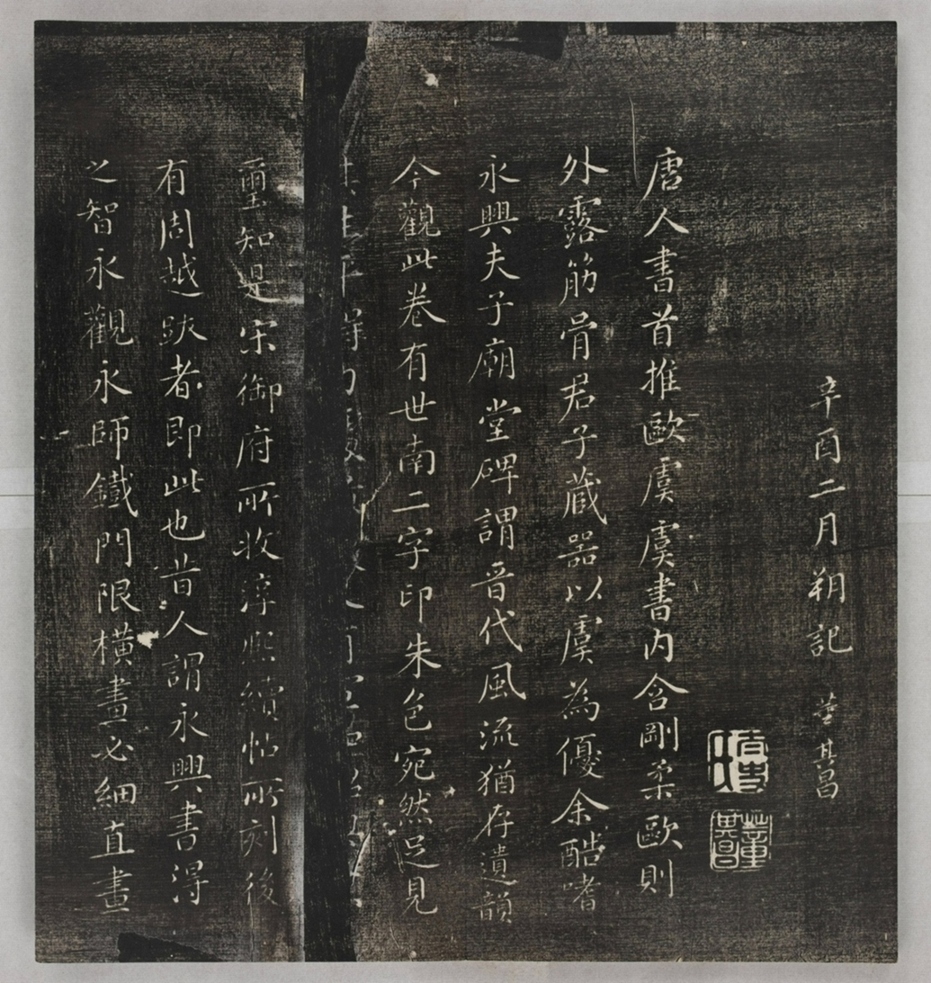 辛酉二月朔記 董其昌
太史氏
董其昌
唐人書首推歐虞虞書内含剛柔歐則
外露筋骨君子藏器以虞為優余酷嗜
永興夫子廟堂碑謂晉代風流猶存遺韻
今觀此卷有世南二字印朱色宛然足見
其生平得
璽知是宋御府所收淳熙續帖所刻後
有周越跋者即此也昔人謂永興書得
之智永觀永師鐵門限橫畫必細直畫